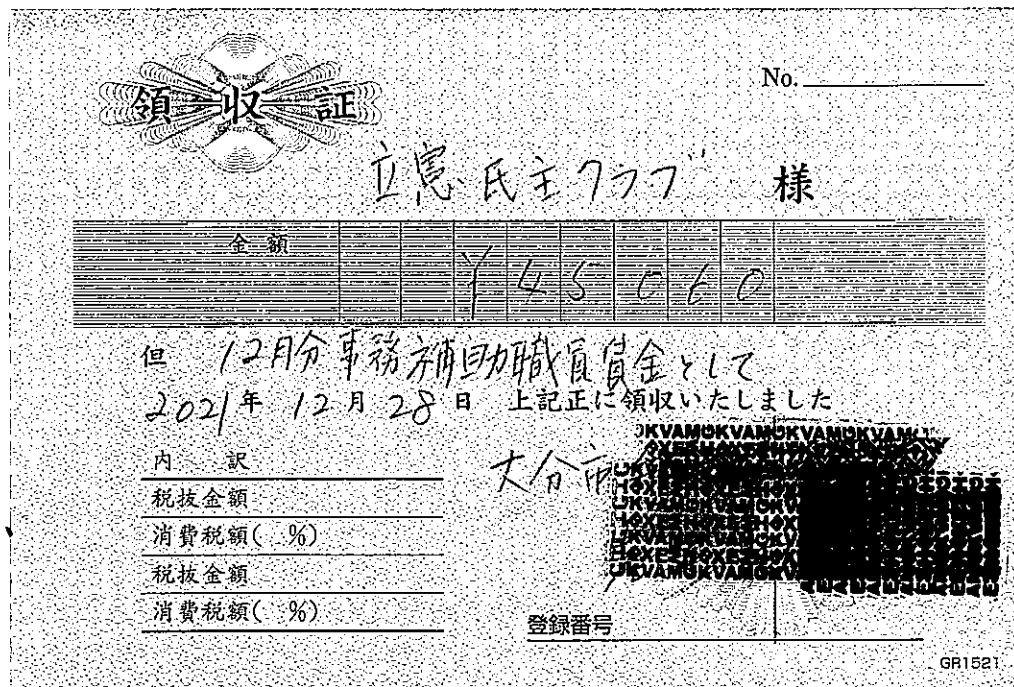 領収証
No.
立憲民主クラブ 様
金額 ¥45060
但 12月分事務補助職員賃金として
2021年 12月 28日 上記正に領収いたしました
大分市
内 訳
税抜金額
消費税額( %)
税抜金額
消費税額( %)
登録番号
GR1521